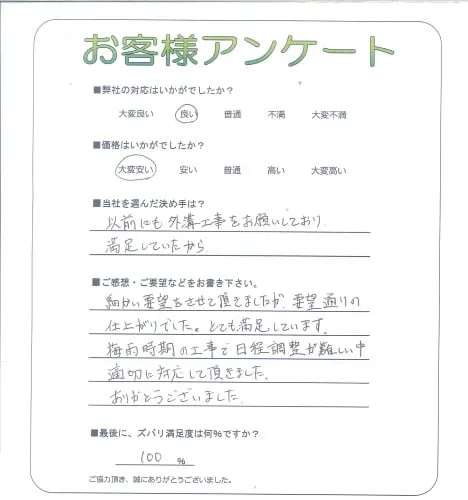 お客様アンケート
■弊社の対応はいかがでしたか？
大変良い 良い 普通 不満 大変不満
■価格はいかがでしたか？
大変安い 安い 普通 高い 大変高い
■当社を選んだ決め手は？
以前にも外溝工事をお願いしており
満足していたから
■ご感想・ご要望などをお書き下さい。
細かい要望をさせて頂きましたが、要望通りの
仕上がりでした。とても満足しています。
梅雨時期の工事で日程調整が難しい中
適切に対応して頂きました。
ありがとうございました。
■最後に、ズバリ満足度は何％ですか？
100 ％
ご協力頂き、誠にありがとうございました。